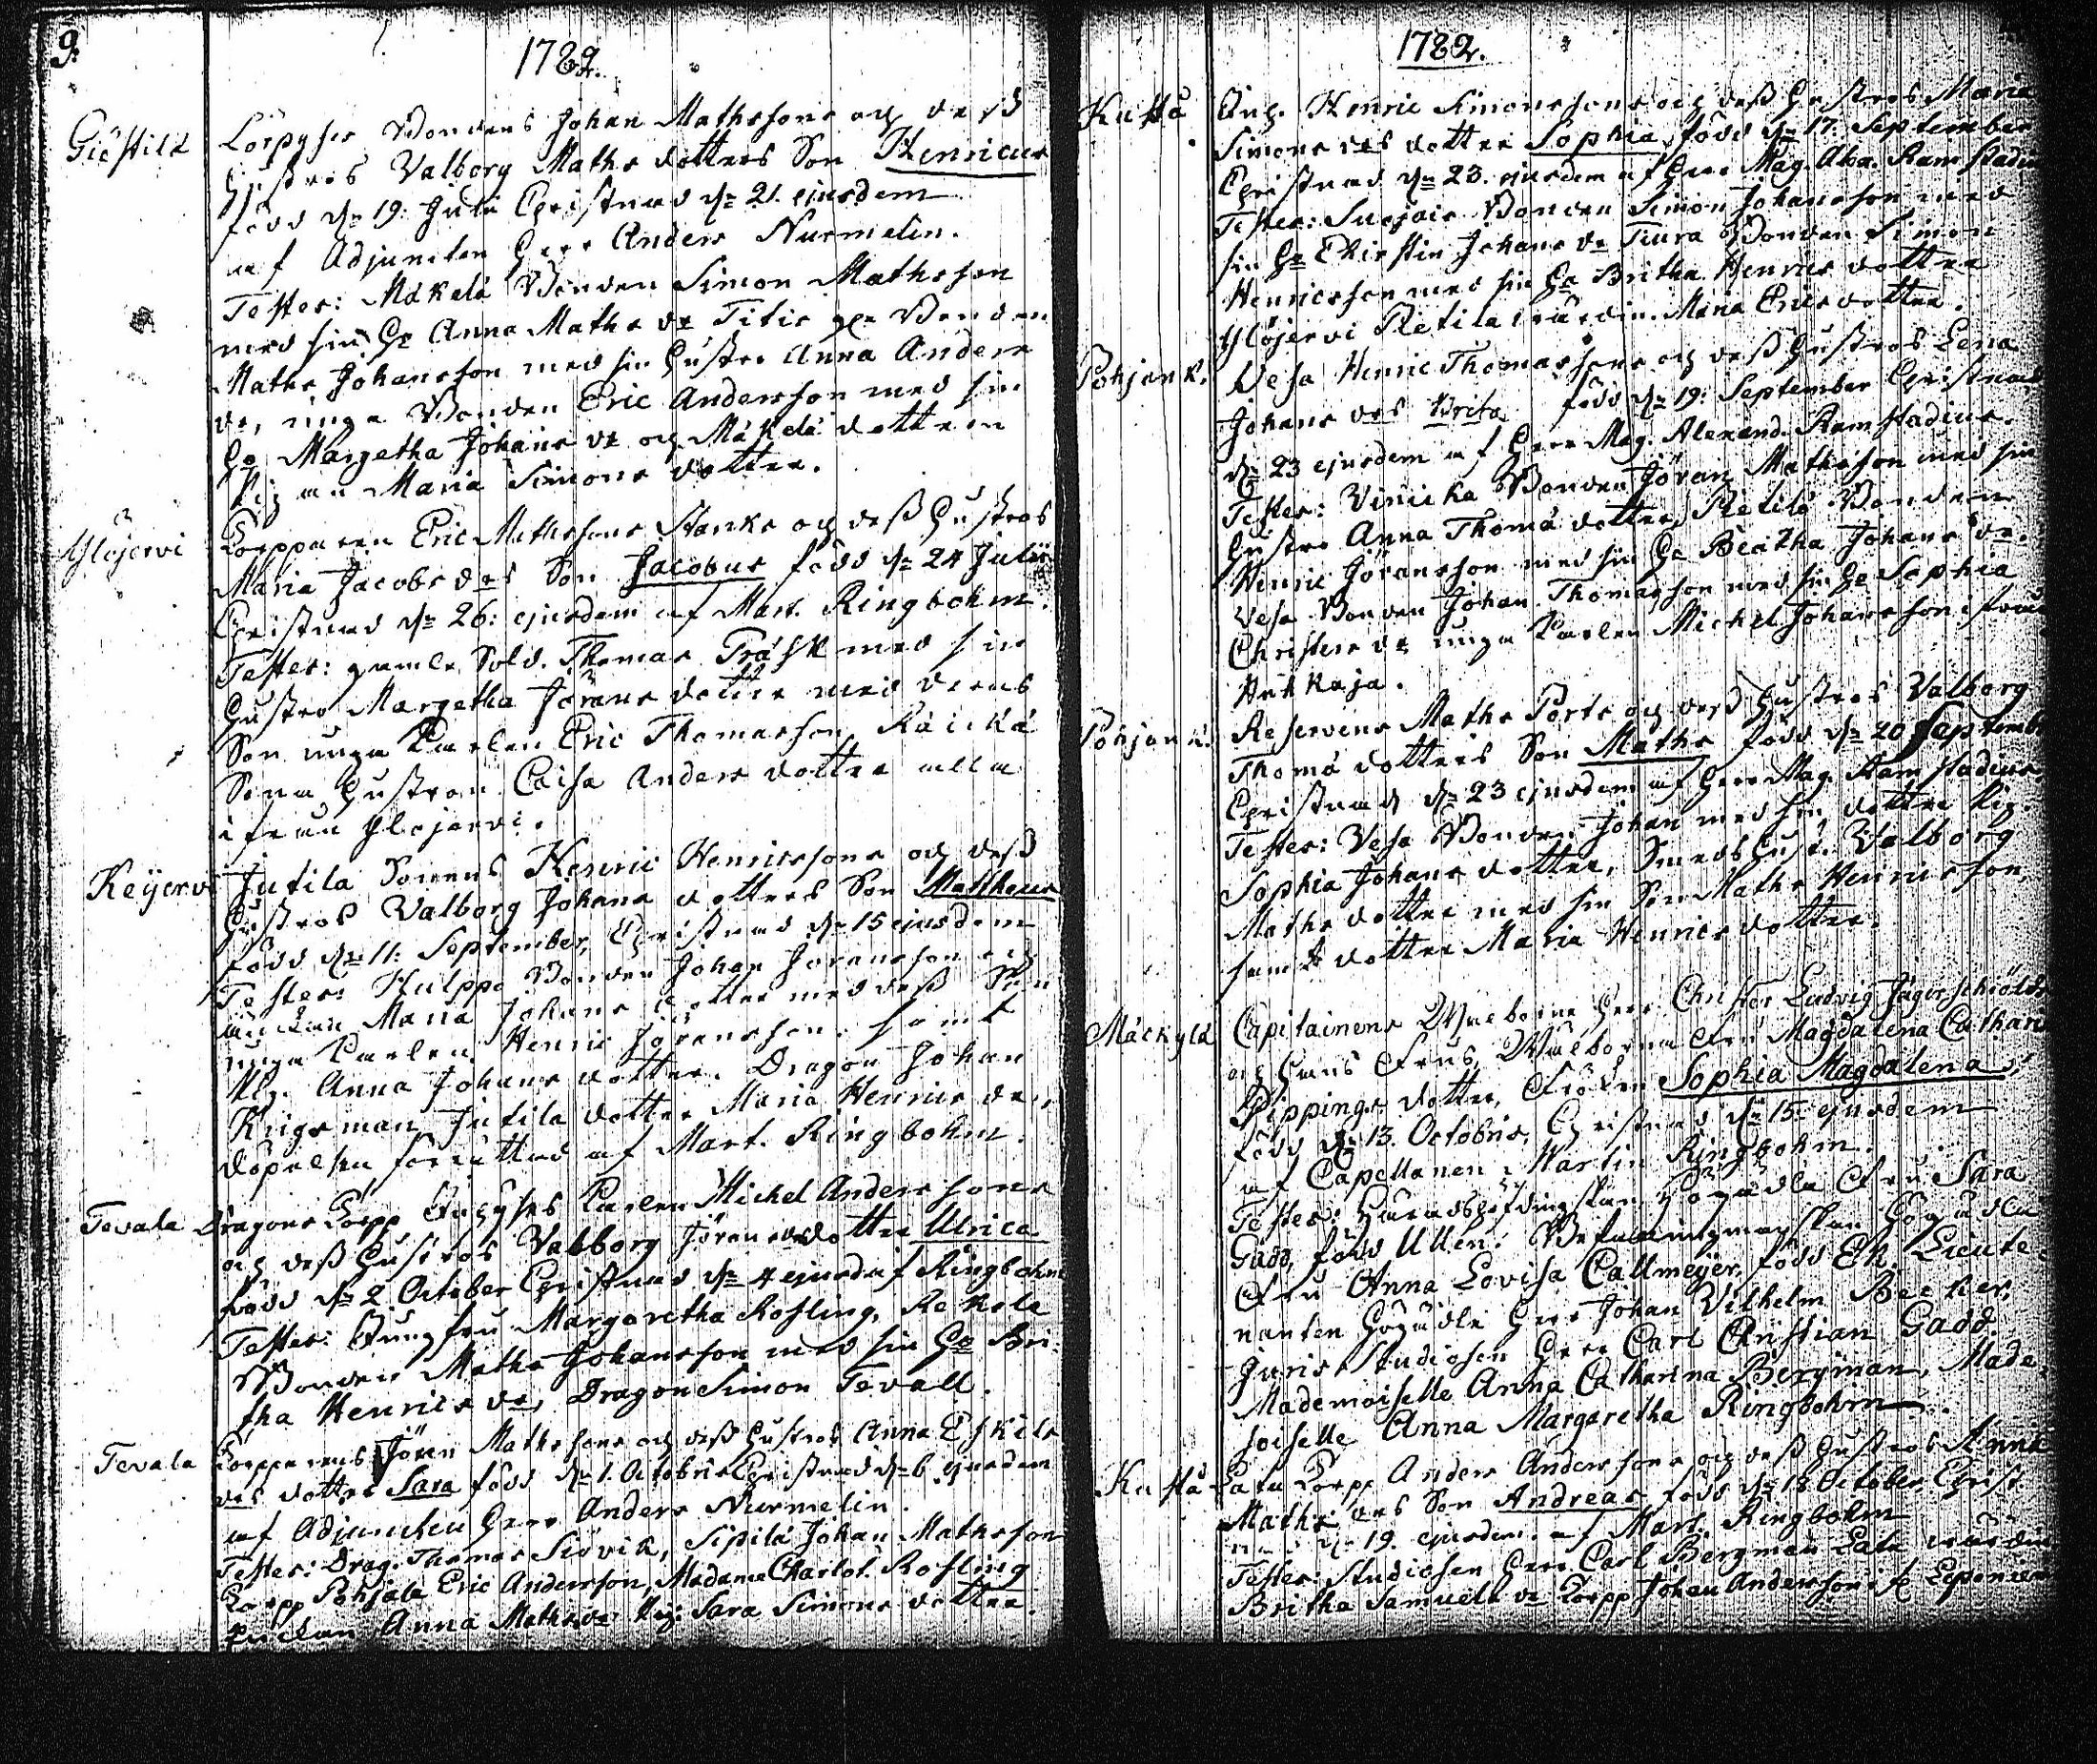 9.
1782.
Giöttilä Lörpyses Bondens Johan Mathssons och dess
hustrus Valborg Maths dotters Son Henricus
född dn 19. Julii Christnad dn 21. ejusdem
af Adjuncten Herr Anders Nurmelin.
Testes: Mäkelä Bonden Simon Mathsson
med sin Ho Anna Maths dr Titis Bonden
Maths Johansson med sin hustro Anna Anders
dr, unga Bonden Eric Andersson med sin
Ho Margetha Johans dr och Mäkelä dottern
Pigan Maria Simons dotter.
Ylöjervi Torpparen Eric Mathssons Hanks och dess hustros
Maria Jacobs drs Son Jacobus född dn 24 Julii
Christnad dn 26: ejusdem af Mart. Ringbohm.
Testes: gamle Sold. Thomas Träsk med sin
hustro Margetha Jörans dotter med deras
Son unga Karlen Eric Thomasson, Räickä
Sona hustron Caisa Anders dotter alla
ifrån Ylöjervi.
Keijervi Jutila Sonens Henric Henricssons och dess
hustros Valborg Johans dotters Son Mattheus
född dn 11. September, Christnad dn 15 ejusdem
Testes: Hulppo Bonden Johan Joransson och
änckan Maria Johans dotter med dess Son
unga Karlen Henric Jöransson, samt
Pig. Anna Johans dotter. Dragon Johan
Krigsman, Jutila dotter Maria Henrics dr,
döpelsen förrättad af Mart. Ringbohm.
Tevala Dragons Torpp Inhyses Karlen Michel Anderssons
och dess hustros Valborg Jörans dotter Ulrica
född dn 2 October Christnad dn 4 ejusd af Ringbohm
Testes: Jungfru Margaretha Rosling, Rekola
Bonden Maths Johansson med sin Ho Bri-
tha Henrics dr, Dragon Simon Tevall.
Tevala Torpparens Jören Mathssons och dess hustros Anna Eskils
drs dotter Sara född dn 1. Octobris Christnad dn 6 ejusdem
af Adjuncten Herr Anders Nurmelin.
Testes: Drag. Thomas Siövik, Sipilä Johan Mathsson
Torpp Pohjala Eric Andersson, Madame Charlot. Rosling
Enckan Anna Maths dr Pig: Sara Simons dotter.
1782.
Kuttå Inh. Henric Simonssons och dess hustros Maria
Simons drs dotter Sophia, född dn 17. September
Christnad dn 23. ejusdem af Herr Mag. Alex. Ramstadius
Testes: Bonden Simon Johansson med
sin Ho Christin Johans dr Tiura Bonden Simon
Henricsson med sin Ho Britha Henrics dotter
Ylöjervi Pietila wärdin. Maria Erics dotter.
Pohjank. Vesa Henric Thomassons och dess hustros Lena
Johans drs Brita född dn 19: September Christnad
dn 23 ejusdem af Herr Mag. Alexand. Ramstadius.
Testes: Vinicka Bonden Jöran Mathsson med sin
hustro Anna Thomä dotter, Pietilä Bonden
Henric Jöransson med sin Ho Beatha Johans dr.
Vesa Bonden Johan Thomasson med sin Ho Sophia
Christers dr unga Karlen Michel Johansson ifrån
Hukkaja.
Pohjank. Reservens Maths Ports och dess hustros Valborg
Thomä dotters Son Maths född dn 20 September
Christnad dn 23 ejusdem af Herr Mag. Ramstadius
Testes: Vesa Bonden Johan med sin dotter Pig.
Sophia Johans dotter, Smeds hust. Valborg
Maths dotter med sin Son Maths Henricsson
samt dotter Maria Henrics dotter.
Mäckylä Capitainens Wälborne Herr Christer Ludvig Jägerschiölds
och hans Frus Wälborna Fru Magdalena Catharina
Pippings dotter, Fröken Sophia Magdalena,
född dn 13. Octobris, Christnad dn 15. ejusdem
af Capellanen Martin Ringbohm.
Testes: Häradshöfdingskan Högädla Fru Sara
Gadd, född Ullen. Befallningsmanskan Högädla
Fru Anna Lovisa Callmeÿer, född Ek. Lieute-
nanten Högädle Herr Johan Vilhelm Becker,
Juris Studiosen Herr Carl Christian Gadd.
Mademoiselle Anna Catharina Bergman, Made-
moiselle Anna Margaretha Ringbohm.
Kuttå Latu Torpp Anders Anderssons och dess hustros Anna
Maths drs Son Andreas född dn 18 October Christ-
nad dn 19. ejusdem. af Mart. Ringbohm
Testes: Studiosen Herr Carl Bergman Latu wärdin
Britha Samuels dr Torpp Johan Andersson